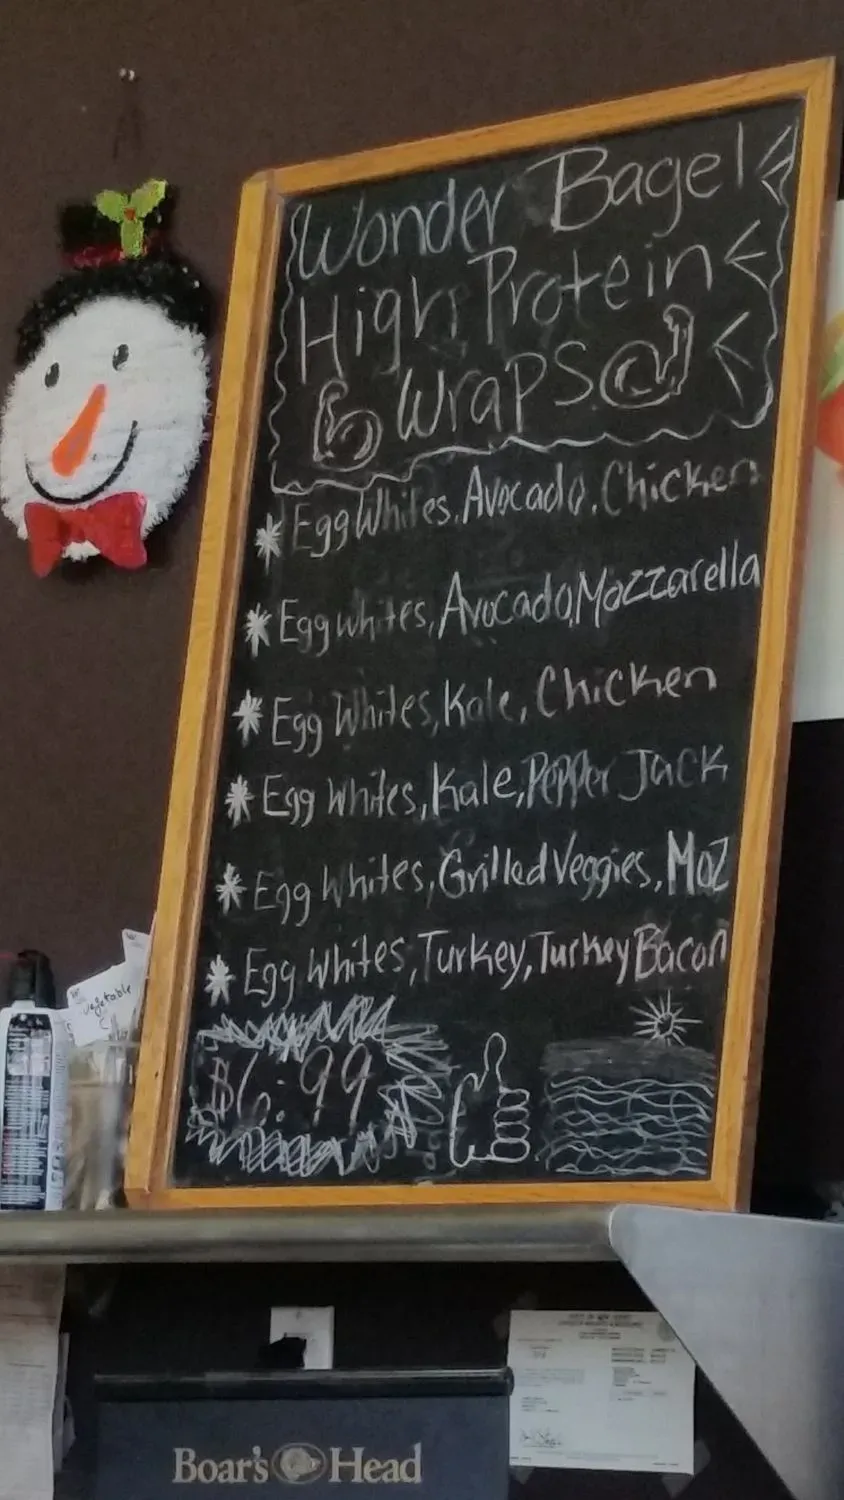 Wonder Bagel
High Protein
Wraps
Egg Whites, Avocado, Chicken
Egg Whites, Avocado, Mozzarella
Egg Whites, Kale, Chicken
Egg Whites, Kale, Pepper Jack
Egg Whites, Grilled Veggies, Moz
Egg Whites, Turkey, Turkey Bacon
$6.99
Vegetable
Boar's Head